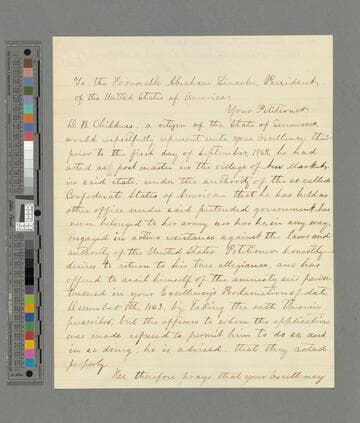 To the Honorable Abraham Lincoln, President,
of the United States of America:
Your Petitioner
D. N. Childress, a citizen of the State of Tennessee
would respectfully represent unto your Excellency, that
prior to the first day of September, 1863, he had
acted as post master in the village of New Market,
in said state, under the authority of the so called
Confederate States of America - that he has held no
other office under said pretended government, has
never belonged to her army nor has he in any way
engaged in active resistance against the laws and
authority of the United States. Petitioner honestly
desires to return to his true allegiance, and has
offered to avail himself of the amnesty and pardon
tendered in your Excellency's Proclamation of date
December 8th, 1863, by taking the oath therein
prescribed, but the officers to whom the application
was made refused to permit him to do so, and
in so doing, he is advised, that they acted
properly.
He therefore prays that your Excellency